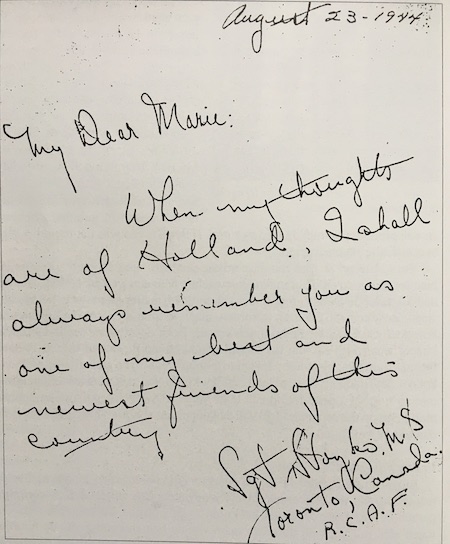 August 23-1944
My Dear Marie:
When my thoughts
are of Holland., I shall
always remember you as
one of my best and
newest friends of this
country.
Sgt Stoyko. M S
Toronto, Canada.
R.C.A.F.